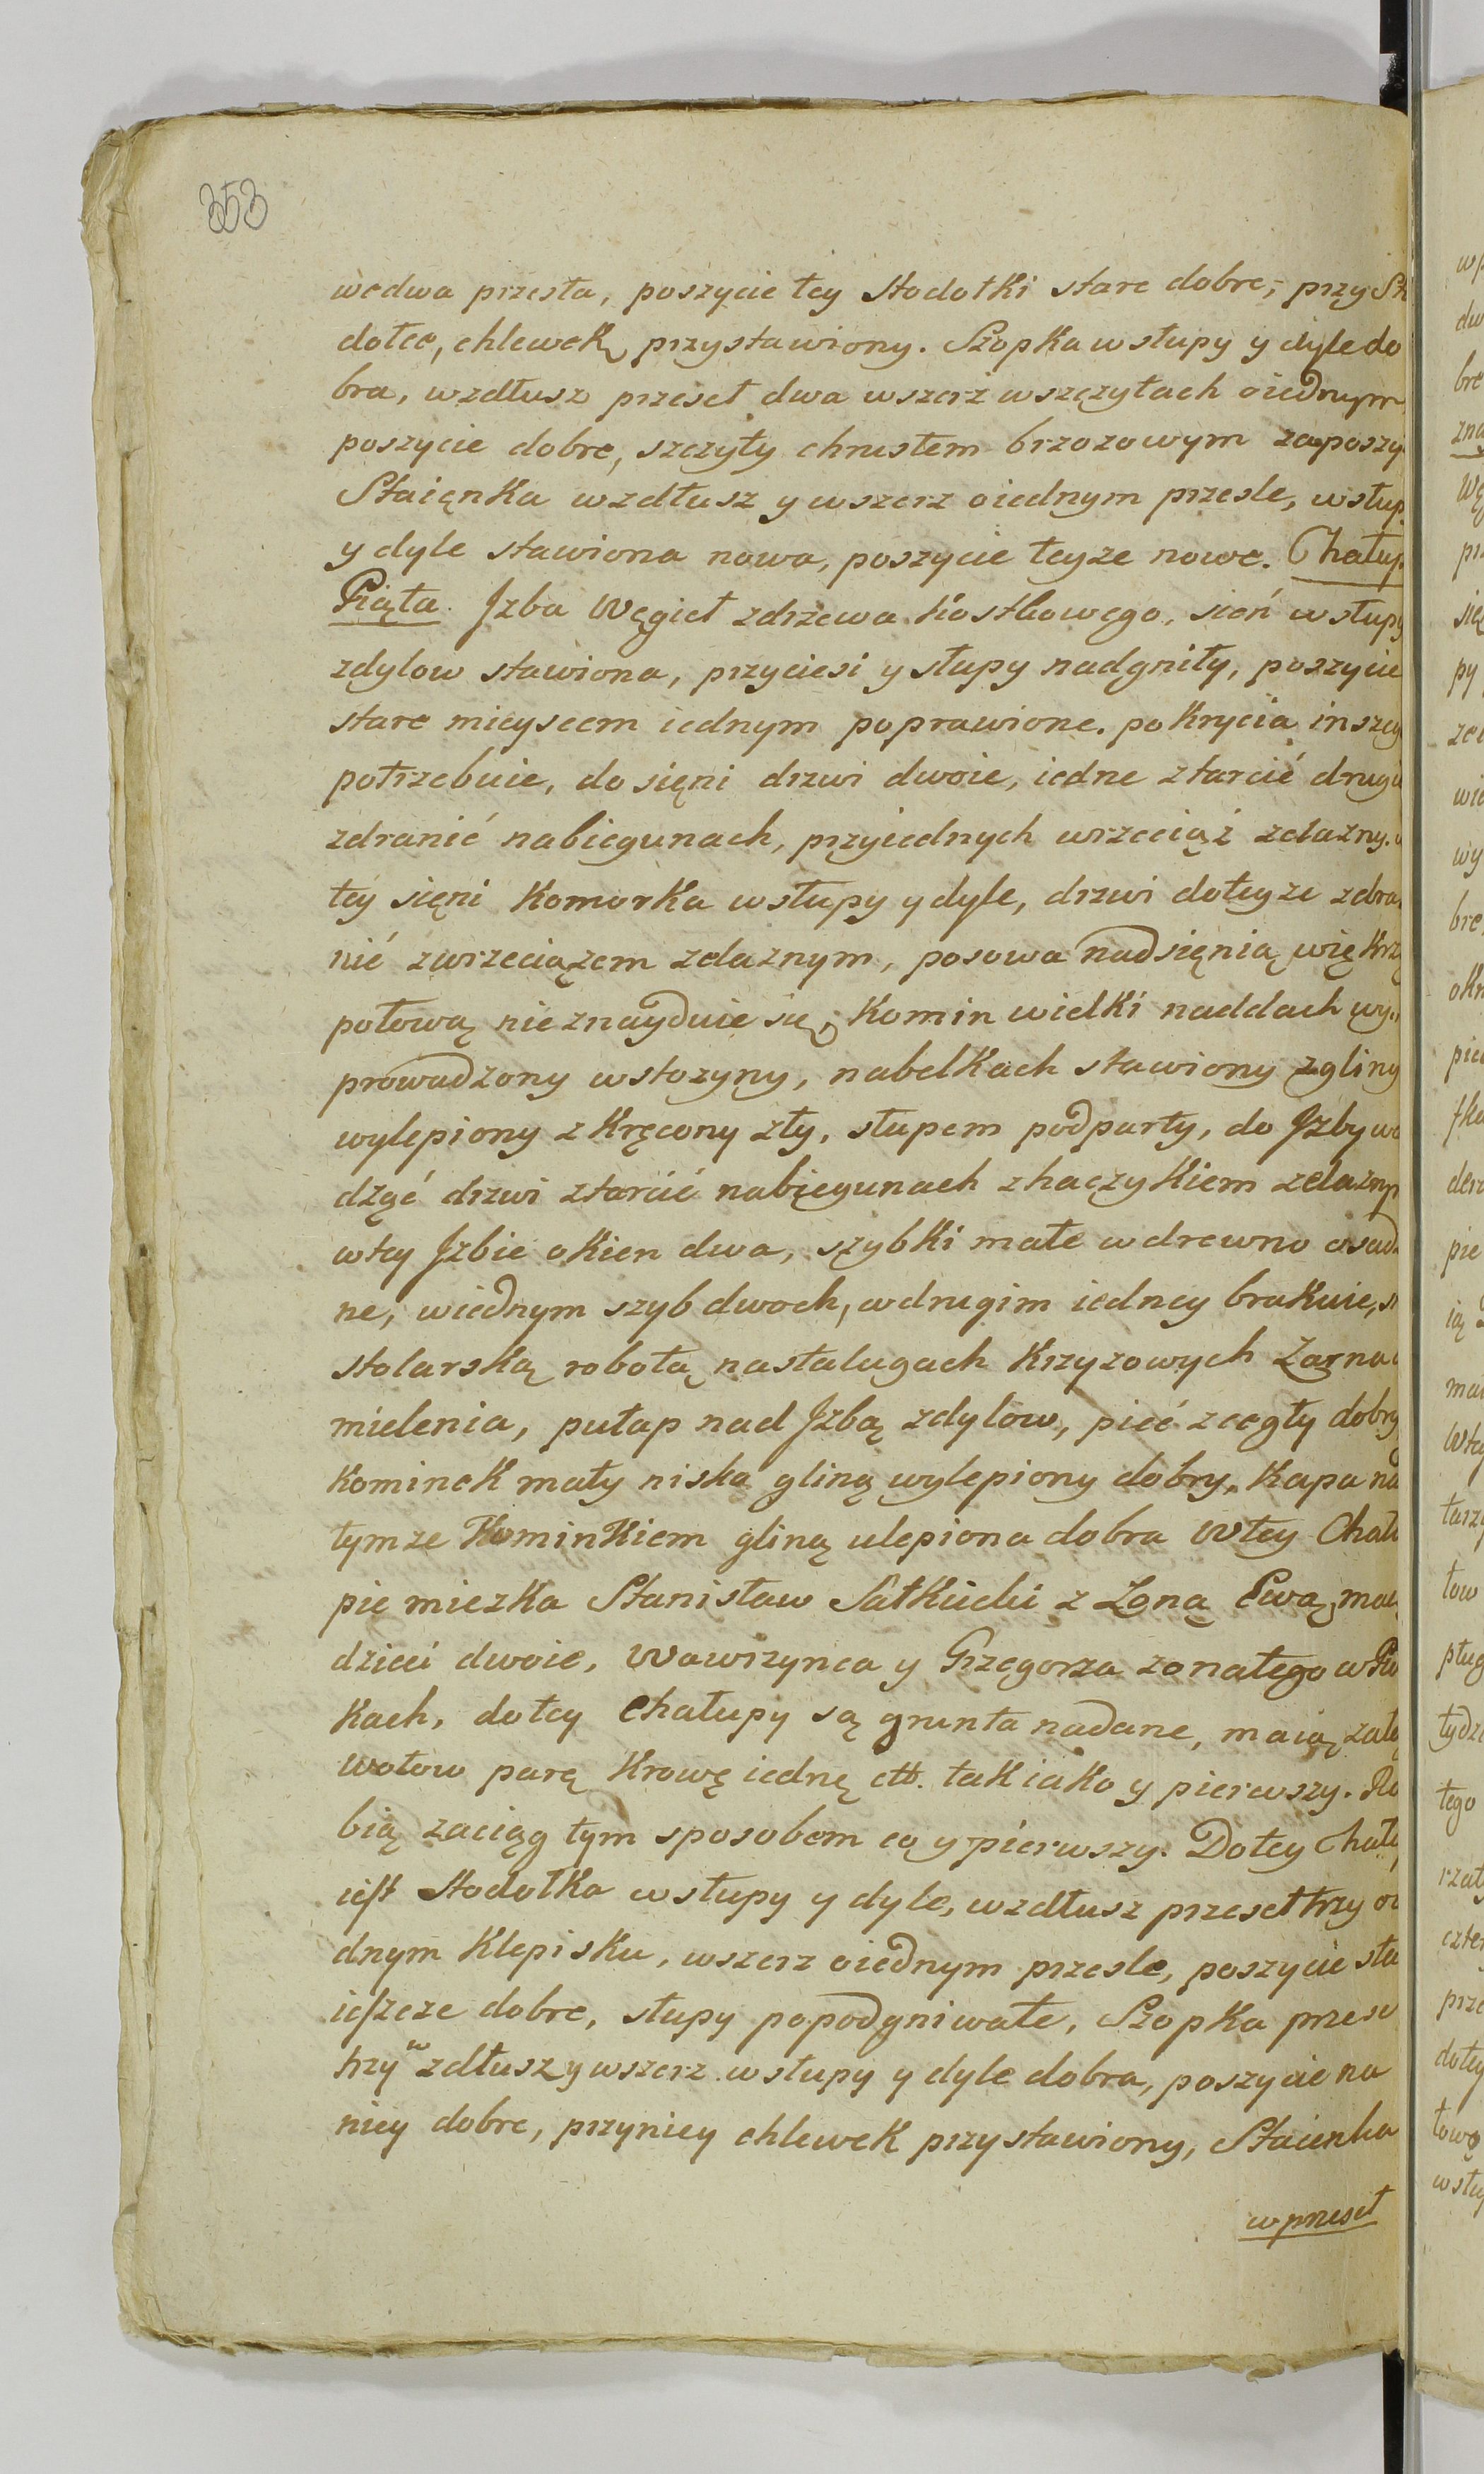 353
wedwa przesła, poszycie tey Stodołki stare dobre, przy St
dołce, chlewek przystawiony. Szopka w słupy y dyle do
bra, wzdłusz przeseł dwa wszerz wszczytach oiednym
poszycie dobre, szczyty chrustem brzozowym zaposzy
Staięnka wzdłusz y wszerz oiednym przesle, wsłup
y dyle stawiona nowa, poszycie teyze nowe. Chałup
Piąta. Jzba Węgieł zdrzewa kostkowego, sień w słupy
zdylow stawiona, przyciesi y słupy nadgniły, poszycie
stare mieyscem iednym poprawione. pokrycia inszeg
potrzebuie, do sięni drzwi dwoie, iedne ztarcić drugie
zdranić nabiegunach, przyiednych wrzeciąż zelazny.
tey sięni Komorka wsłupy y dyle, drzwi doteyze zdra
nić zwrzeciązem zelaznym, posowa nadsięnią więkrzą
połową nieznayduie się, Komin wielki naddach wy
prowadzony wstozyny, nabelkach stawiony zgliny
wylepiony zkręcony zły, słupem podparty, do Jzby wc
dzgć drzwi ztarcić nabięgunach zhaczykiem zelazny
wtey Jzbie okien dwa, szybki małe wdrewno osadz
ne, wiednym szyb dwoch, wdrugim iedney brakuie, s
stolarską robotą nastalugach Krzyzowych Zarna
mielenia, pułap nad Jzbą zdylow, pieć zcegły dobry
Kominek mały niska gliną wylepiony dobry. Kapa na
tymze Kominkiem gliną ulepiona dobra Wtey Chału
pie miezka Stanisław Sałkucki z Zoną Ewą, maią
dzieci dwoie, Wawrzynca y Grzegorza zonatego w
kach, dotey Chałupy są grunta nadane, maią zało
wołow parę Krowę iednę ett. tak iako y pierwszy. Ro
bią zaciąg tym sposobem co y pierwszy. Dotey Chału
iest Stodołka wsłupy y dyle, wzdłusz przeseł trzy oie
dnym Klepisku, wszerz oiednym przesle, poszycie sta
ieszcze dobre, słupy popodgniwałe, Szopka przese
trzy w zdłusz y wszerz wsłupy y dyle dobra, poszycie na
niey dobre, przyniey chlewek przystawiony, Staienka
w przeseł